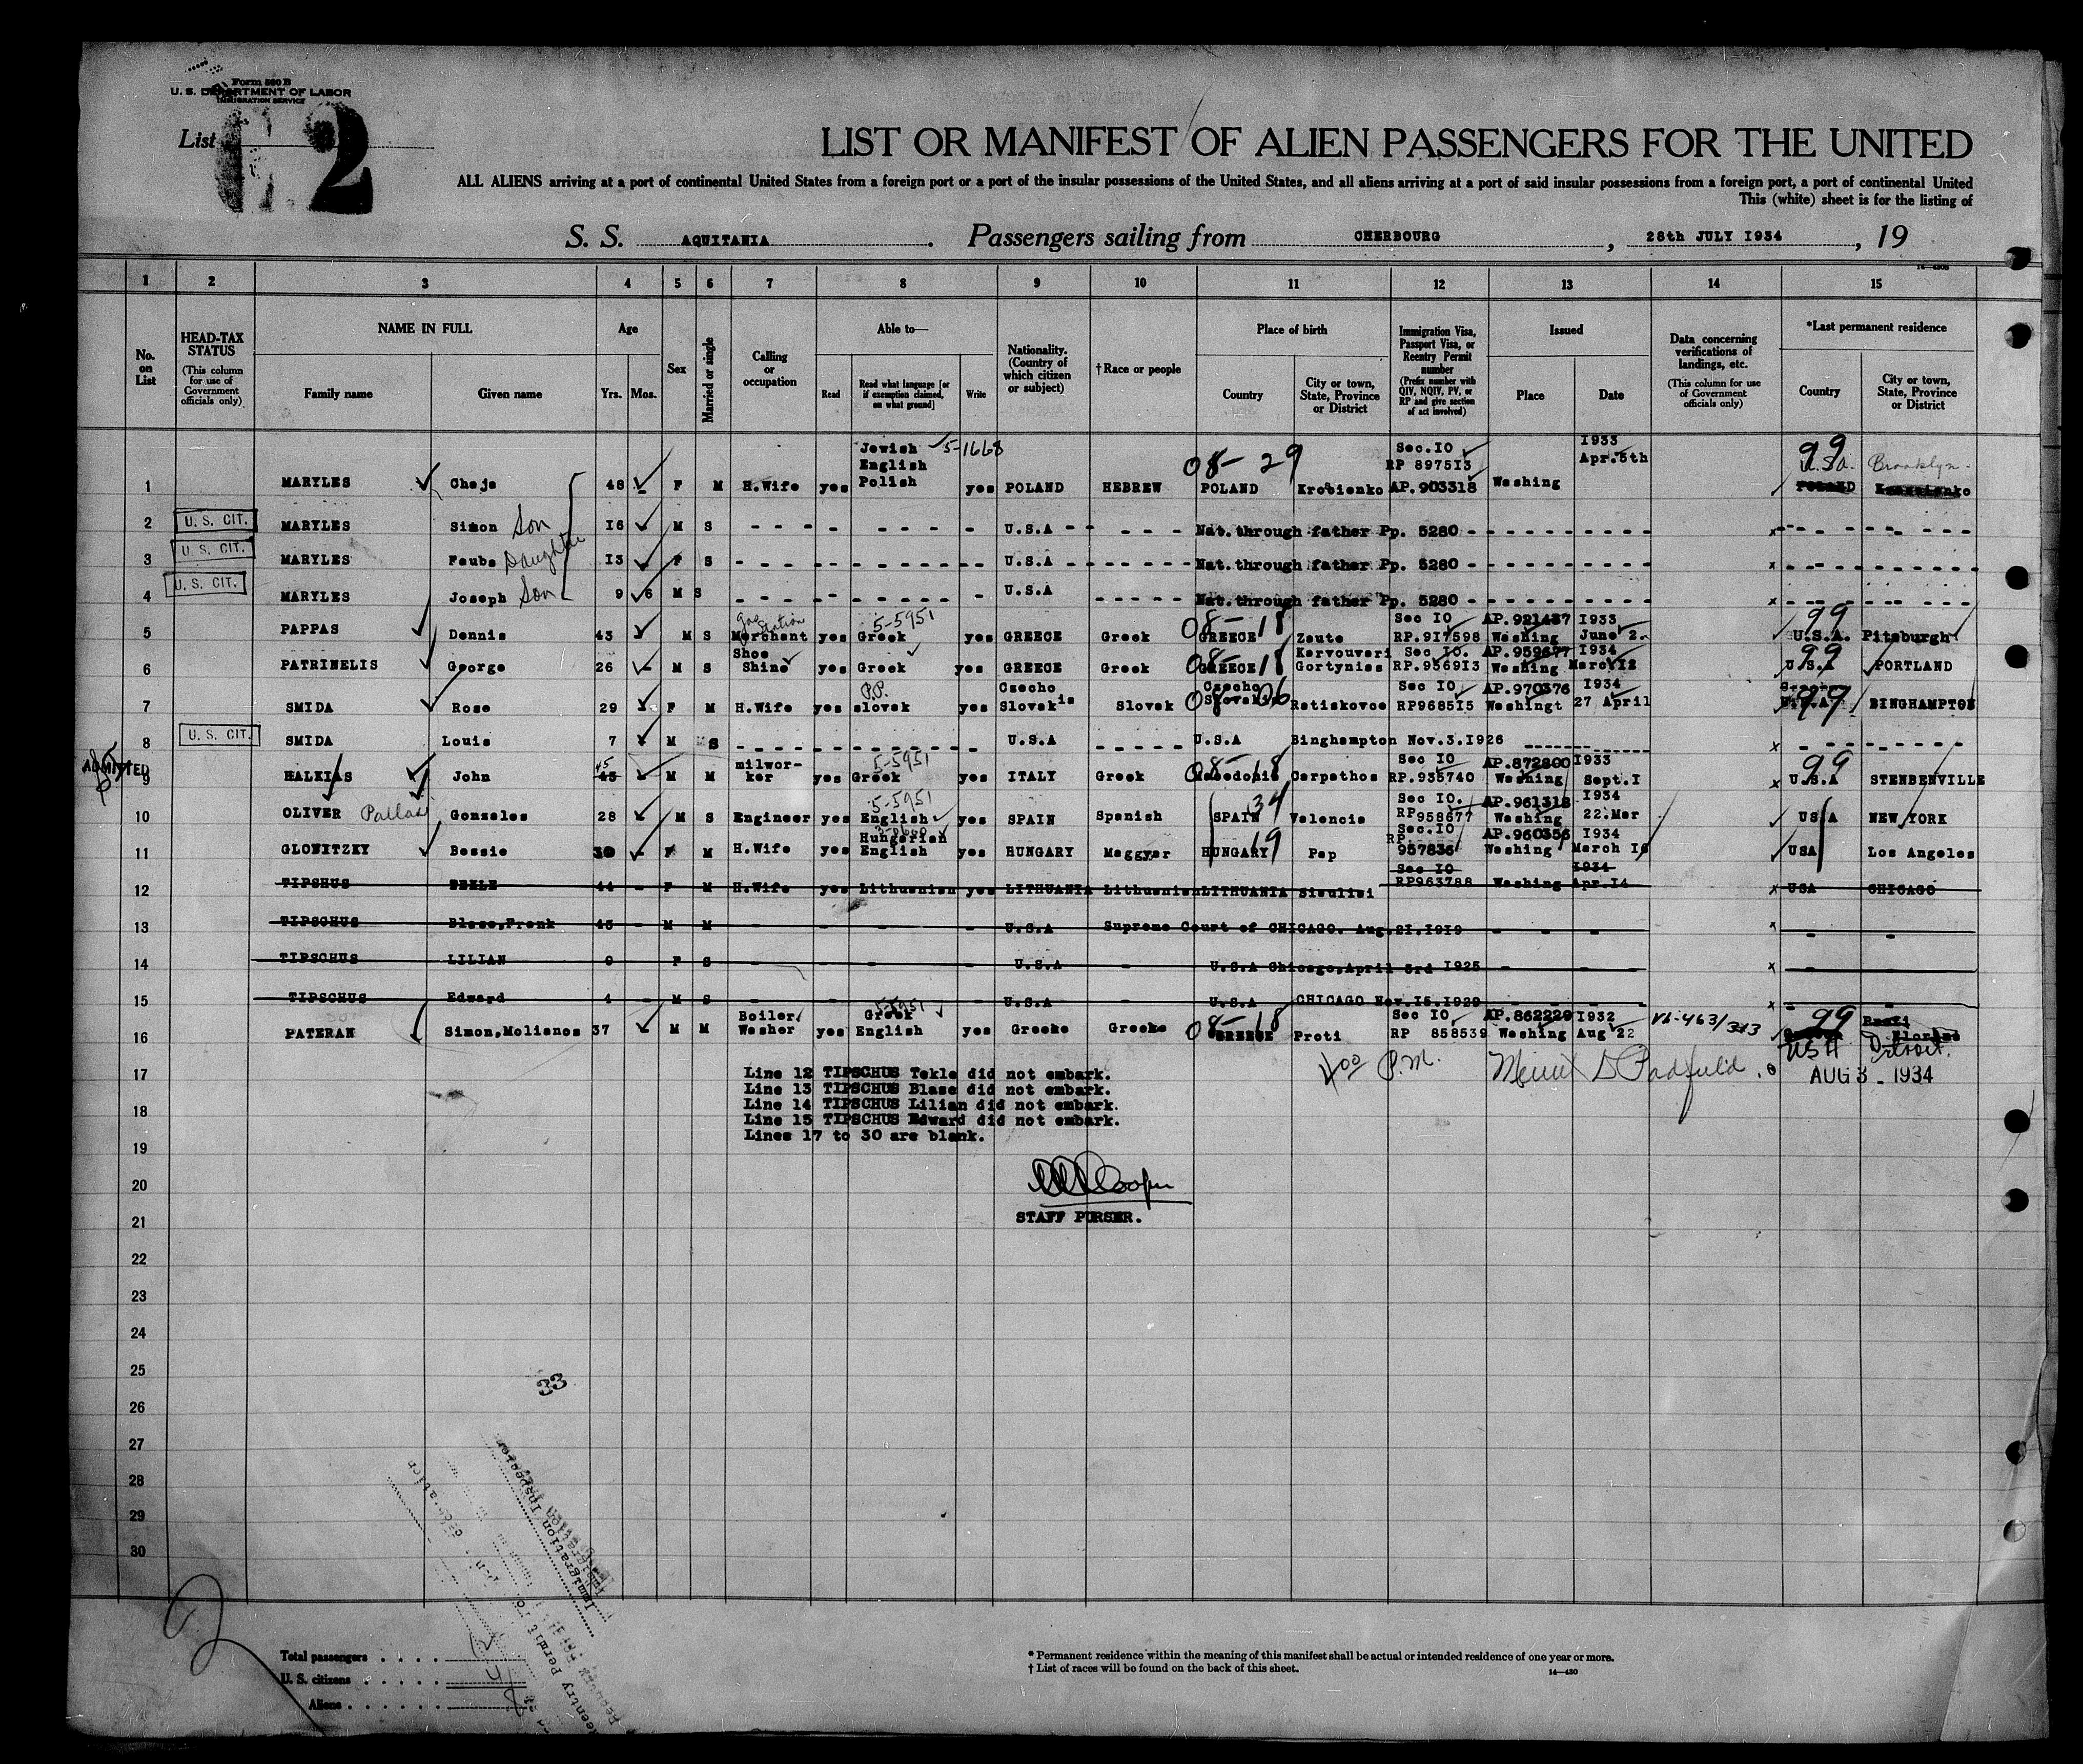 Form 500 B
U. S. DEPARTMENT OF LABOR
IMMIGRATION SERVICE
List 2
LIST OR MANIFEST OF ALIEN PASSENGERS FOR THE UNITED
ALL ALIENS arriving at a port of continental United States from a foreign port or a port of the insular possessions of the United States, and all aliens arriving at a port of said insular possessions from a foreign port, a port of continental United
This (white) sheet is for the listing of
S. S. AQUITANIA. Passengers sailing from CHERBOURG, 28th JULY I934, 19
1 2 3 4 5 6 7 8 9 10 11 12 13 14 15
No. on List
HEAD-TAX STATUS (This column for use of Government officials only)
NAME IN FULL Family name Given name
Age Yrs. Mos.
Sex
Married or single
Calling or occupation
Able to— Read Read what language [or if exemption claimed, on what ground] Write
Nationality. (Country of which citizen or subject)
†Race or people
Place of birth Country City or town, State, Province or District
Immigration Visa, Passport Visa, or Reentry Permit number (Prefix number with QIV, NQIV, PV, or RP and give section of act involved)
Issued Place Date
Data concerning verifications of landings, etc. (This column for use of Government officials only)
*Last permanent residence Country City or town, State, Province or District
1 MARYLES Chaja 48 F M H.Wife yes Jewish English Polish 5-1668 yes POLAND HEBREW 08-29 POLAND Krosienko Sec.IO RP 8975I3 AP.903318 Washing I933 Apr.5th 99 U.S.A. Brooklyn POLAND
2 U. S. CIT. MARYLES Simon Son I6 M S U.S.A Nat.through father Pp. 5280
3 U. S. CIT. MARYLES Feubs Daughter I3 F S U.S.A Nat.through father Pp. 5280
4 U. S. CIT. MARYLES Joseph Son 9 6 M S U.S.A Nat.through father Pp. 5280
5 PAPPAS Dennis 43 M S Gas Station Merchant yes 5-5951 Greek yes GREECE Greek 08-18 GREECE Zaute Sec IO RP.9I7598 AP.921437 Washing I933 June 2. 99 U.S.A. Pitsburgh
6 PATRINELIS George 26 M S Shoe Shine yes Greek yes GREECE Greek 08-18 GREECE Karvouvari Gortynias Sec IO. RP.9569I3 AP.959677 Washing I934 March I2 99 U.S.A PORTLAND
7 SMIDA Rose 29 F M H.Wife yes P.P. slovak yes Czecho Slovakia Slovak Czecho Slovakia 08-06 Ratiskovce Sec IO RP9685I5 AP.970376 Washingt I934 27 April 99 BINGHAMPTON
8 U. S. CIT. SMIDA Louis 7 M S U.S.A U.S.A Binghampton Nov.3.I926
ADMITTED
9 HALKIAS John 45 45 M M milwor-ker yes 5-5951 Greek yes ITALY Greek 08-18 Macedonia Carpathos Sec IO RP.935740 AP.872800 Washing I933 Sept.I 99 U.S.A STENBENVILLE
10 OLIVER Pallas Gonzales 28 M S Engineer yes 5-5951 English yes SPAIN Spanish 34 SPAIN Valencia Sec IO. RP 958677 AP.961318 Washing I934 22.Mar USA NEW YORK
11 GLOWITZKY Bessie 30 F M H.Wife yes Hungarian English yes HUNGARY Magyar 19 HUNGARY Pap Sec.IO RP. 957836 AP.960356 Washing I934 March I6 USA Los Angeles
12 TIPSHUS TEKLE 44 - F M H.Wife yes Lithuanian yes LITHUANIA Lithuanian LITHUANIA Siaulisi Sec IO RP963788 Washing I934 Apr.I4 USA CHICAGO
13 TIPSCHUS Blase,Frank 45 - M M U.S.A Supreme Court of CHICAGO. Aug.2I.I9I9
14 TIPSCHUS LILIAN 9 F S U.S.A U.S.A Chicago,April 3rd I925
15 TIPSCHUS Edward 4 - M S U.S.A U.S.A CHICAGO Nov.I5.I929
16 PATERAN Simon,Molianos 37 M M Boiler Washer yes 5-5951 Greek English yes Greeke Greeke 08-18 GREECE Proti Sec IO RP 858539 AP.862229 Washing I932 Aug 22 V6-463/313 99 USA Detroit.
17 Line 12 TIPSCHUS Tekle did not embark. 4:00 P.M. AUG 3 - 1934
Line 13 TIPSCHUS Blase did not embark.
18 Line 14 TIPSCHUS Lilian did not embark.
Line 15 TIPSCHUS Edward did not embark.
Lines 17 to 30 are blank.
19
20 Cooper
21 STAFF PURSER.
22
23
24
25
33
26
27
28
29
30
Immigration Inspector
Reentry Permit
Total passengers . . . . 12
U. S. citizens . . . . . 4
Aliens . . . . . . 8
* Permanent residence within the meaning of this manifest shall be actual or intended residence of one year or more.
† List of races will be found on the back of this sheet. 14—430